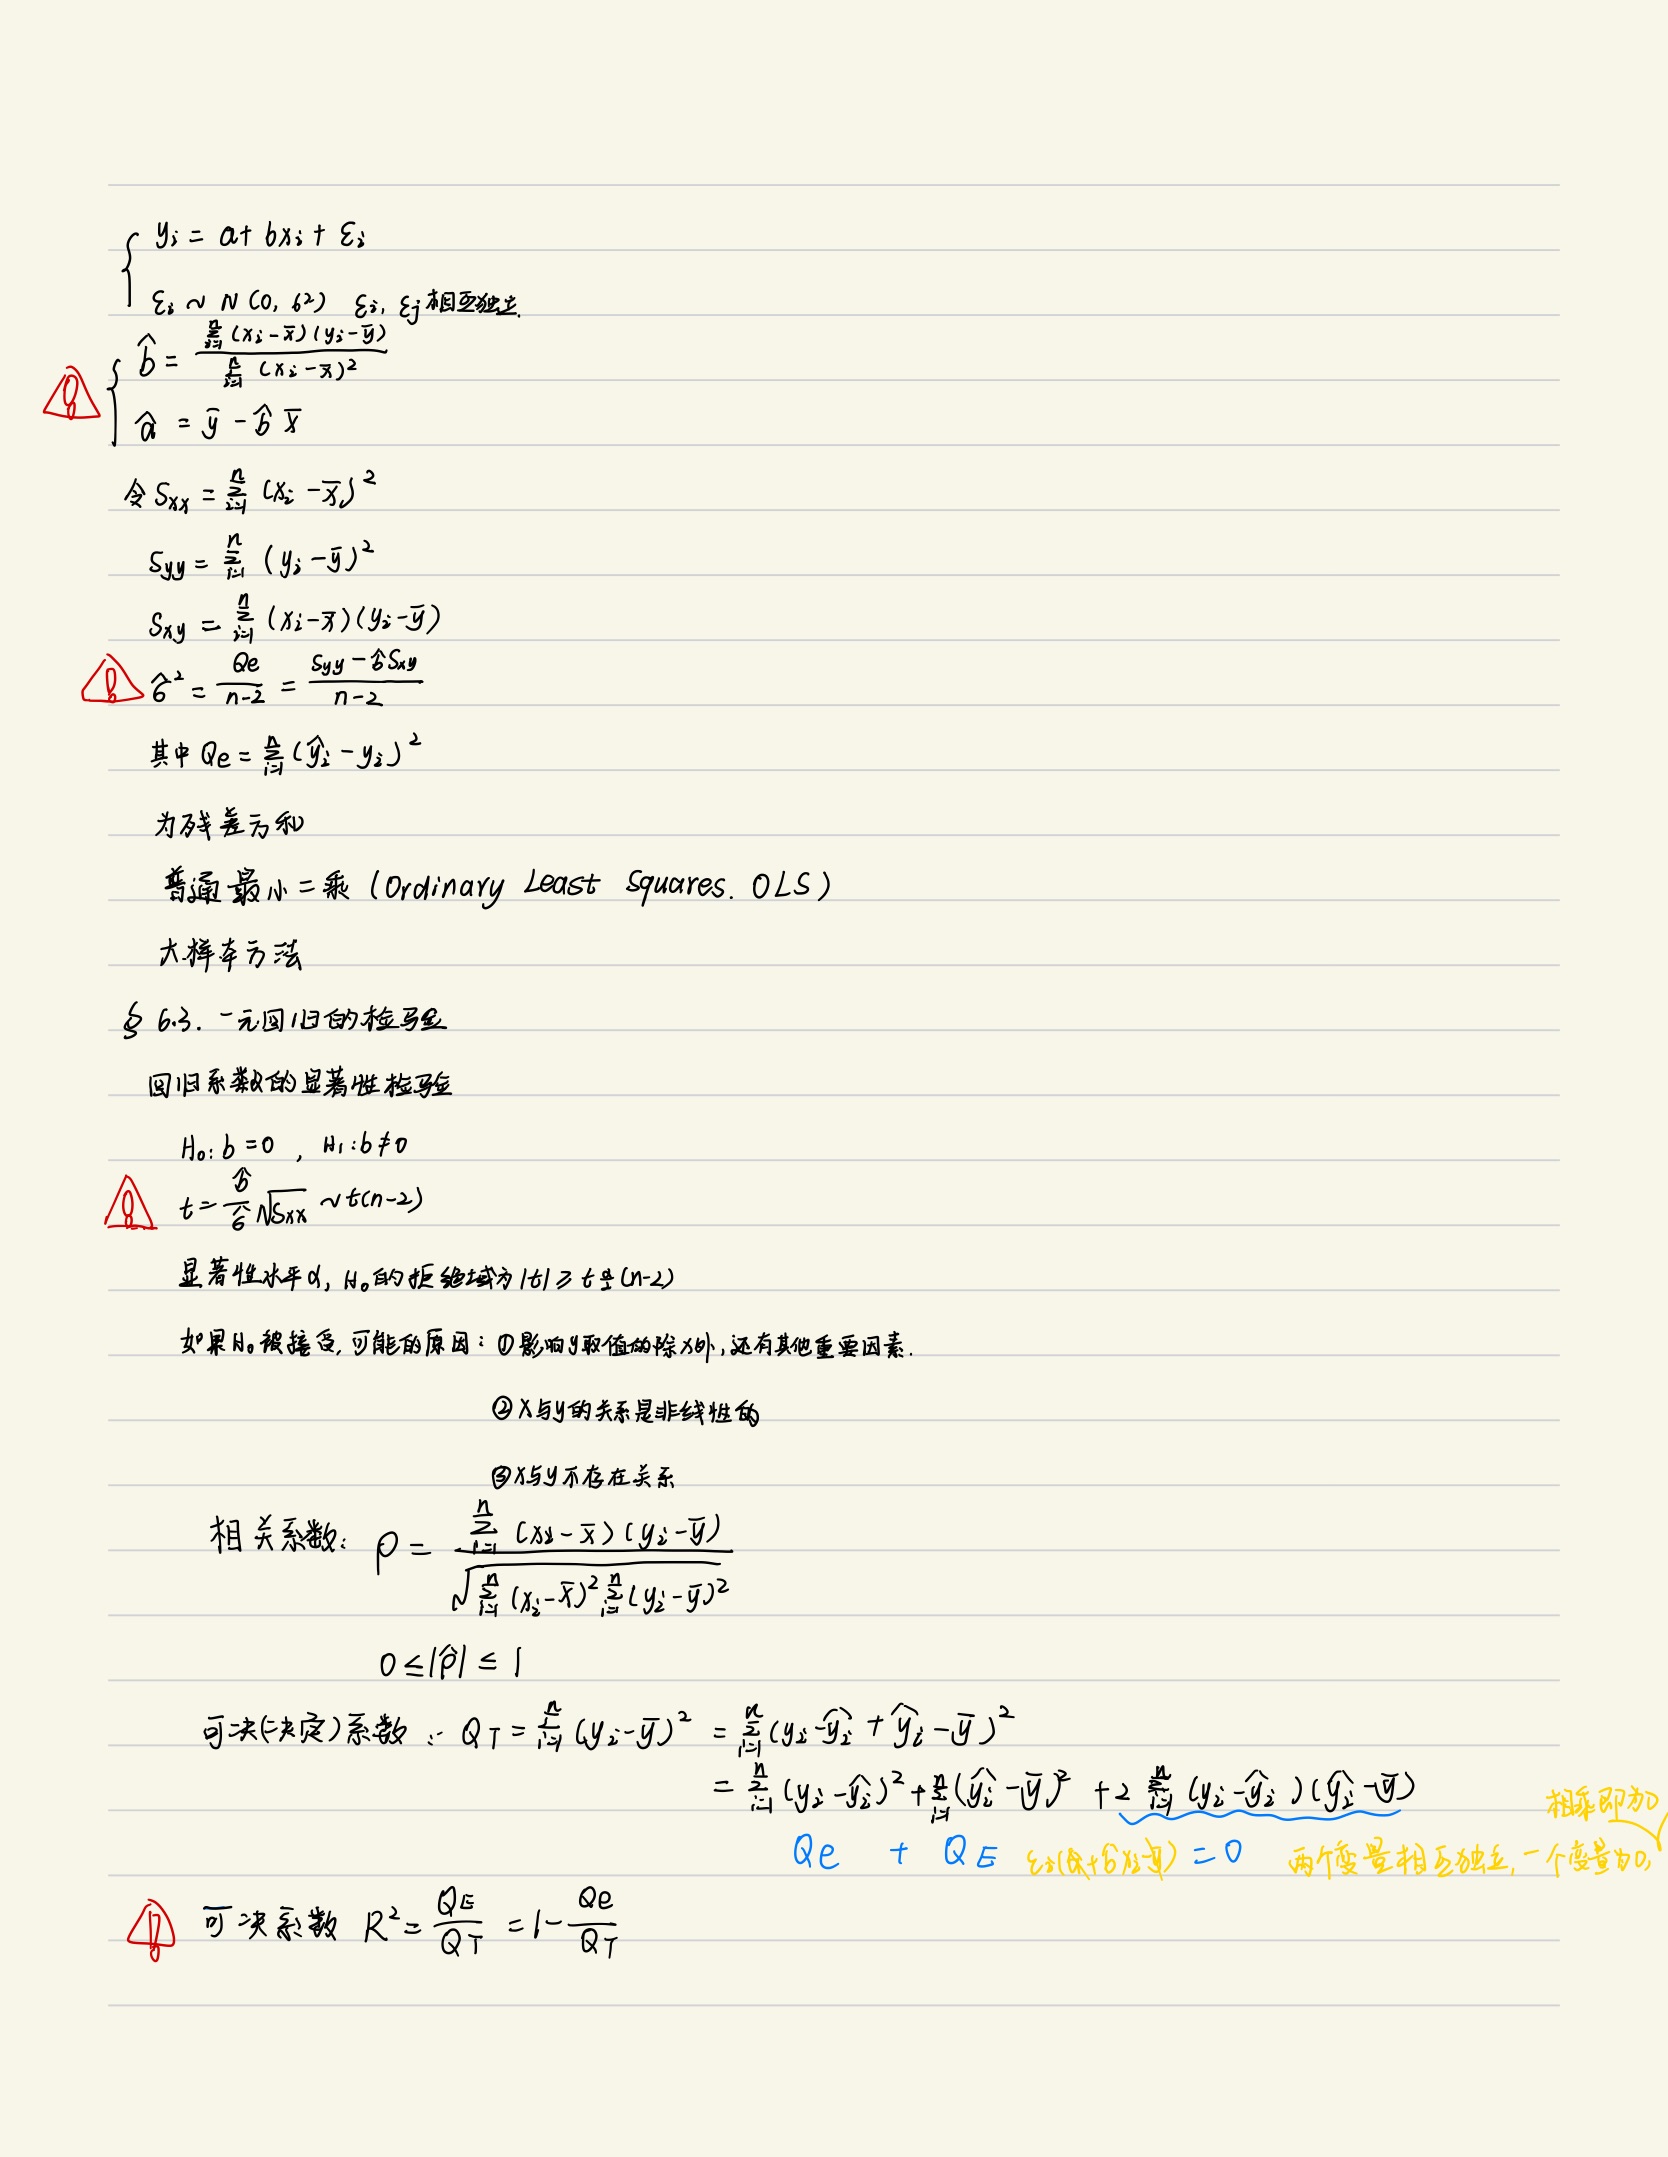 yᵢ = a + bxᵢ + εᵢ
εᵢ ~ N(0, σ²) εᵢ, εⱼ相互独立.
b̂ = Σⁿᵢ₌₁(xᵢ - x̄)(yᵢ - ȳ) / Σⁿᵢ₌₁(xᵢ - x̄)²
â = ȳ - b̂ x̄
令 Sxx = Σⁿᵢ₌₁(xᵢ - x̄)²
Syy = Σⁿᵢ₌₁(yᵢ - ȳ)²
Sxy = Σⁿᵢ₌₁(xᵢ - x̄)(yᵢ - ȳ)
σ̂² = Qe / (n-2) = (Syy - b̂Sxy) / (n-2)
其中 Qe = Σⁿᵢ₌₁(ŷᵢ - yᵢ)²
为残差方和
普通最小二乘 (Ordinary Least Squares. OLS)
大样本方法
§ 6.3. 一元回归的检验
回归系数的显著性检验
H₀: b = 0 , H₁: b ≠ 0
t = b̂/σ̂ √Sxx ~ t(n-2)
显著性水平α, H₀的拒绝域为|t| ≥ t α/2 (n-2)
如果H₀被接受, 可能的原因: ①影响y取值的除x外, 还有其他重要因素.
②x与y的关系是非线性的
③x与y不存在关系
相关系数: ρ = Σⁿᵢ₌₁(xᵢ - x̄)(yᵢ - ȳ) / √(Σⁿᵢ₌₁(xᵢ - x̄)² Σⁿᵢ₌₁(yᵢ - ȳ)²)
0 ≤ |ρ̂| ≤ 1
可决(决定)系数: Q_T = Σⁿᵢ₌₁(yᵢ - ȳ)² = Σⁿᵢ₌₁(yᵢ - ŷᵢ + ŷᵢ - ȳ)²
= Σⁿᵢ₌₁(yᵢ - ŷᵢ)² + Σⁿᵢ₌₁(ŷᵢ - ȳ)² + 2 Σⁿᵢ₌₁(yᵢ - ŷᵢ)(ŷᵢ - ȳ)
相乘即为0
Qe + Q_E εᵢ(â + b̂xᵢ - ȳ) = 0 两个变量相互独立, 一个变量为0,
可决系数 R² = Q_E / Q_T = 1 - Qe / Q_T